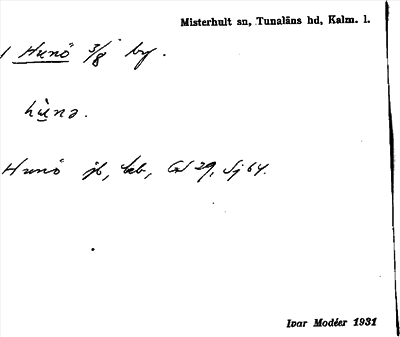 Misterhult sn, Tunaläns hd, Kalm. l.
1 Hunö 3/8 by.
hu̱̇nə.
Hunö jb, Gd 29, Sj 64.
Ivar Modéer 1931